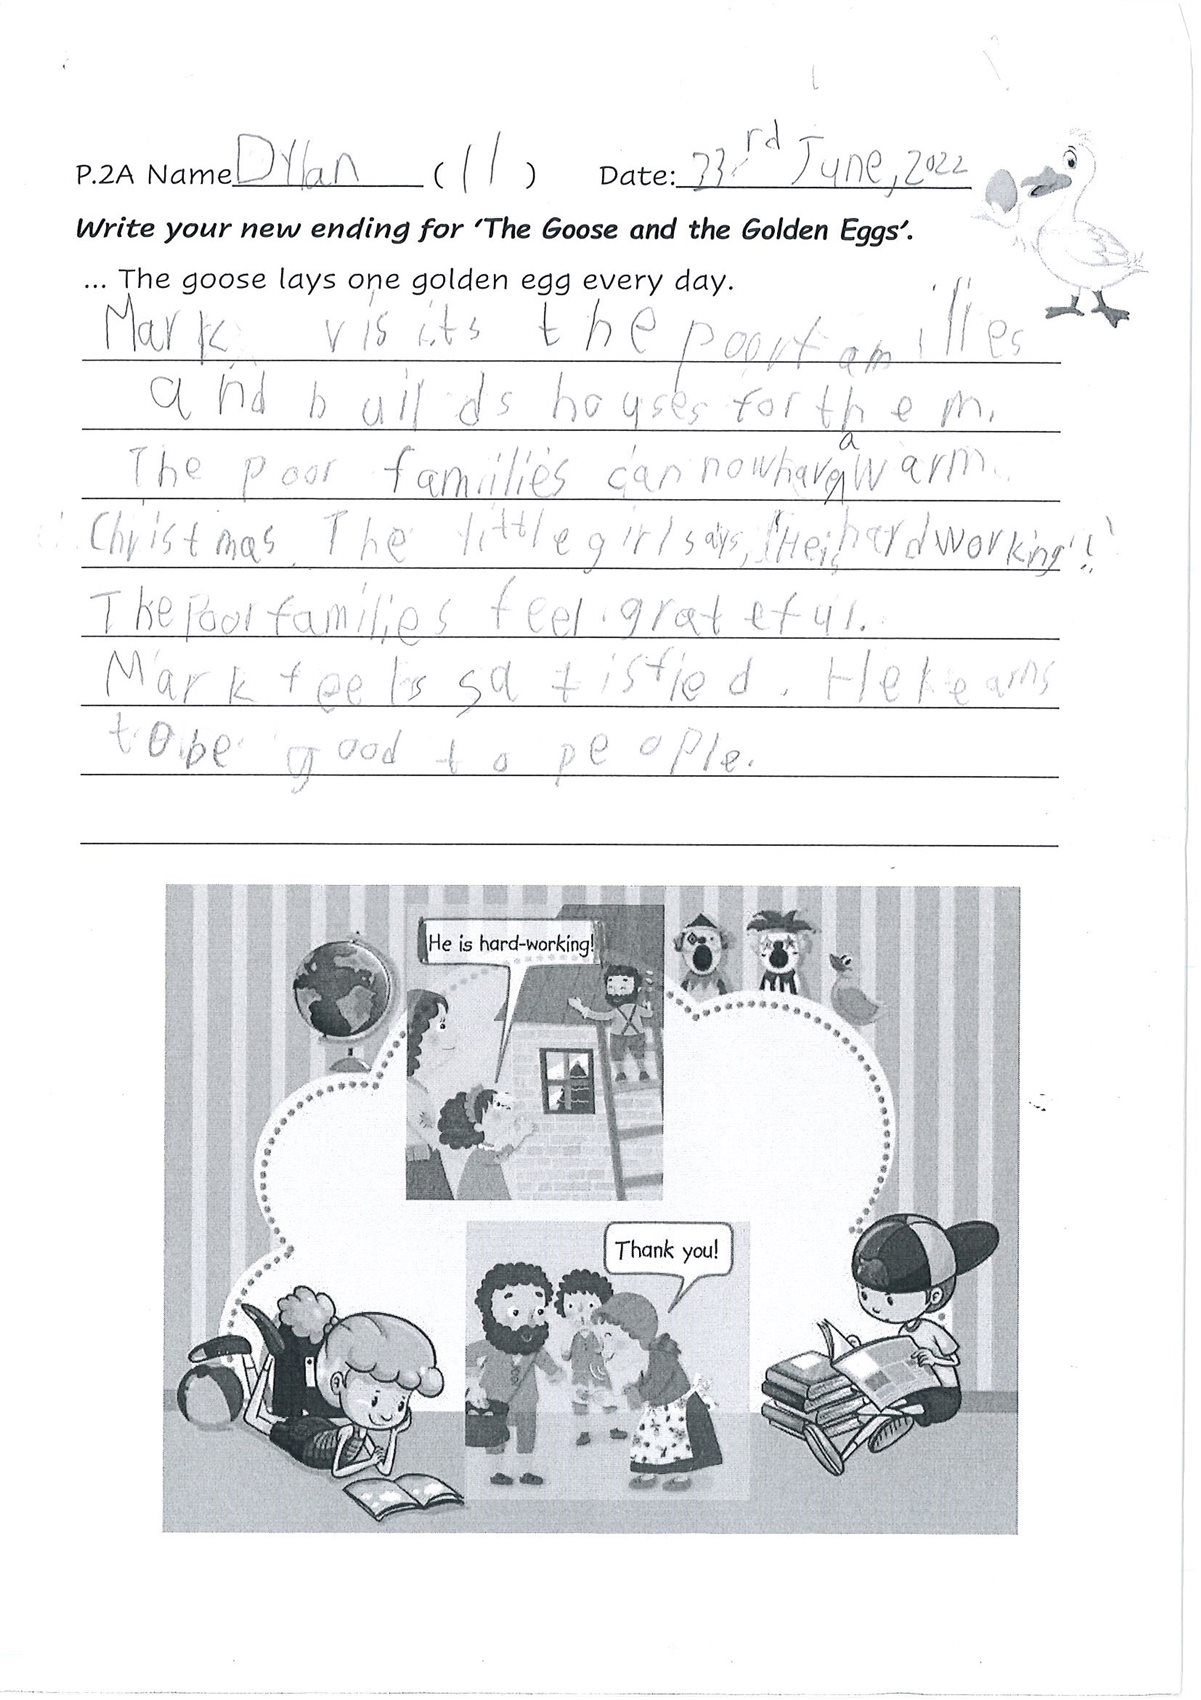 P.2A Name Dylan (11) Date: 23rd June, 2022
Write your new ending for 'The Goose and the Golden Eggs'.
... The goose lays one golden egg every day.
Mark visits the poor families
and builds houses for them.
The poor families can now have a warm
Christmas. The little girl says, "He is hard working"!
The poor families feel grateful.
Mark feels satisfied. He learns
to be good to people.
He is hard-working!
Thank you!